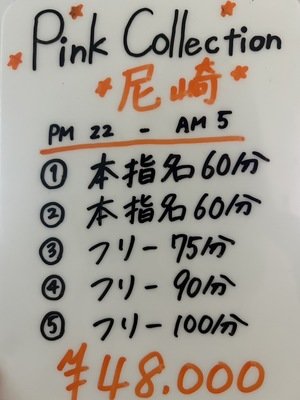 Pink Collection
尼崎
PM 22 - AM 5
① 本指名60分
② 本指名60分
③ フリー 75分
④ フリー 90分
⑤ フリー 100分
¥48.000